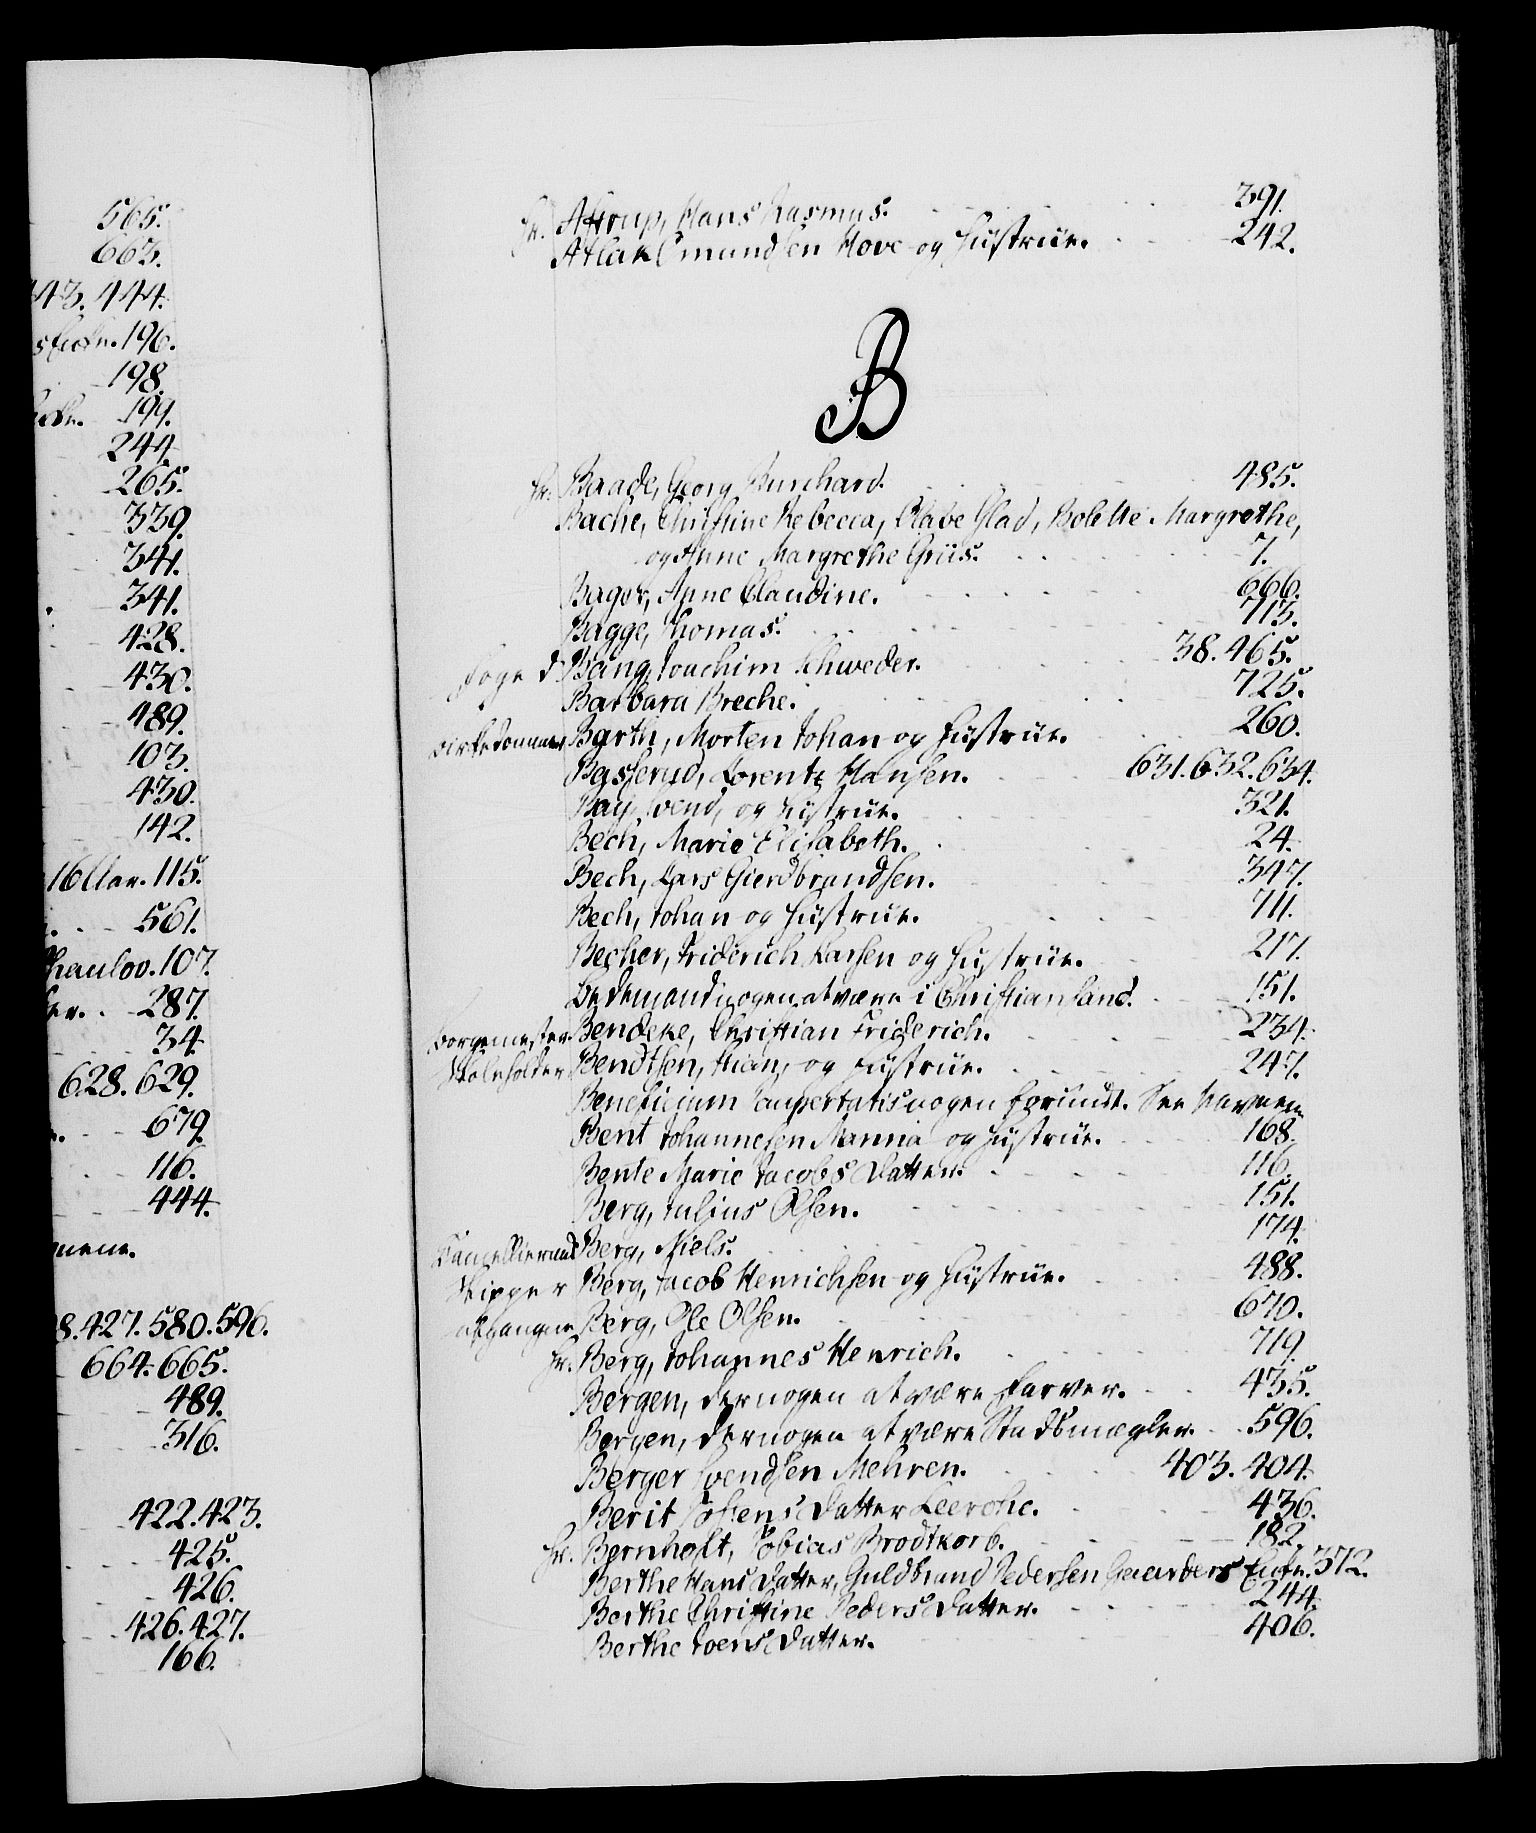 565.
663.
443. 444.
196.
198.
199.
244.
265.
339.
341.
341.
428.
430.
489.
103.
430.
142.
115.
561.
107.
287.
34.
628. 629.
679.
116.
444.
427. 580. 596.
664. 665.
489.
316.
422. 423.
425.
426.
426. 427.
166.
Hr. Attrup, Hans Rasmus. 391.
Atlak Omundsen Hove og Hustrue. 242.
B
Hr. Baade, Georg Burchard. 485.
Bache, Christine Rebecca, Olave Glad, Bolette Margrethe,
og Anne Margrethe Griis. 7.
Bager, Anne Claudine. 666.
Bagge, Thomas. 713.
Foged Bang, Joachim Schweder. 38. 465.
Barbara Breche. 725.
Birkedommer Barth, Morten Johan og Hustrue. 260.
Basserud, Lorentz Hansen. 631. 632. 634.
Bay, Svend, og Hustrue. 321.
Bech, Marie Elisabeth. 24.
Bech, Lars Gierdbrandsen. 347.
Bech, Johan og Hustrue. 711.
Becher, Friderich Larsen og Hustrue. 217.
Bedemand, nogen at være i Christiansand. 151.
Borgemester Bendeke, Christian Friderich. 234.
Skoleholder Bendtsen, Stian, og Hustrue. 247.
Beneficium Paupertatis nogen forundt. See Navnene.
Bent Johannesen Manna og Hustrue. 168.
Bente Marie Jacobs Datter. 116.
Berg, Julius Olsen. 151.
Cancellieraad Berg, Niels. 174.
Skipper Berg, Jacob Henrichsen og Hustrue. 488.
afgangne Berg, Ole Olsen. 670.
Hr. Berg, Johannes Henrich. 719.
Bergen, der nogen at være Farver. 435.
Bergen, der nogen at være Stadsmægler. 596.
Berger Svendsen Mehren. 403. 404.
Berit Tostens Datter Leerohe. 436.
Hr. Bernhoft, Tobias Brodtkorb. 182.
Berthe Hans Datter, Guldbrand Pedersen Gaarders Enke. 372.
Berthe Christine Peders Datter. 244.
Berthe Joens Datter. 406.